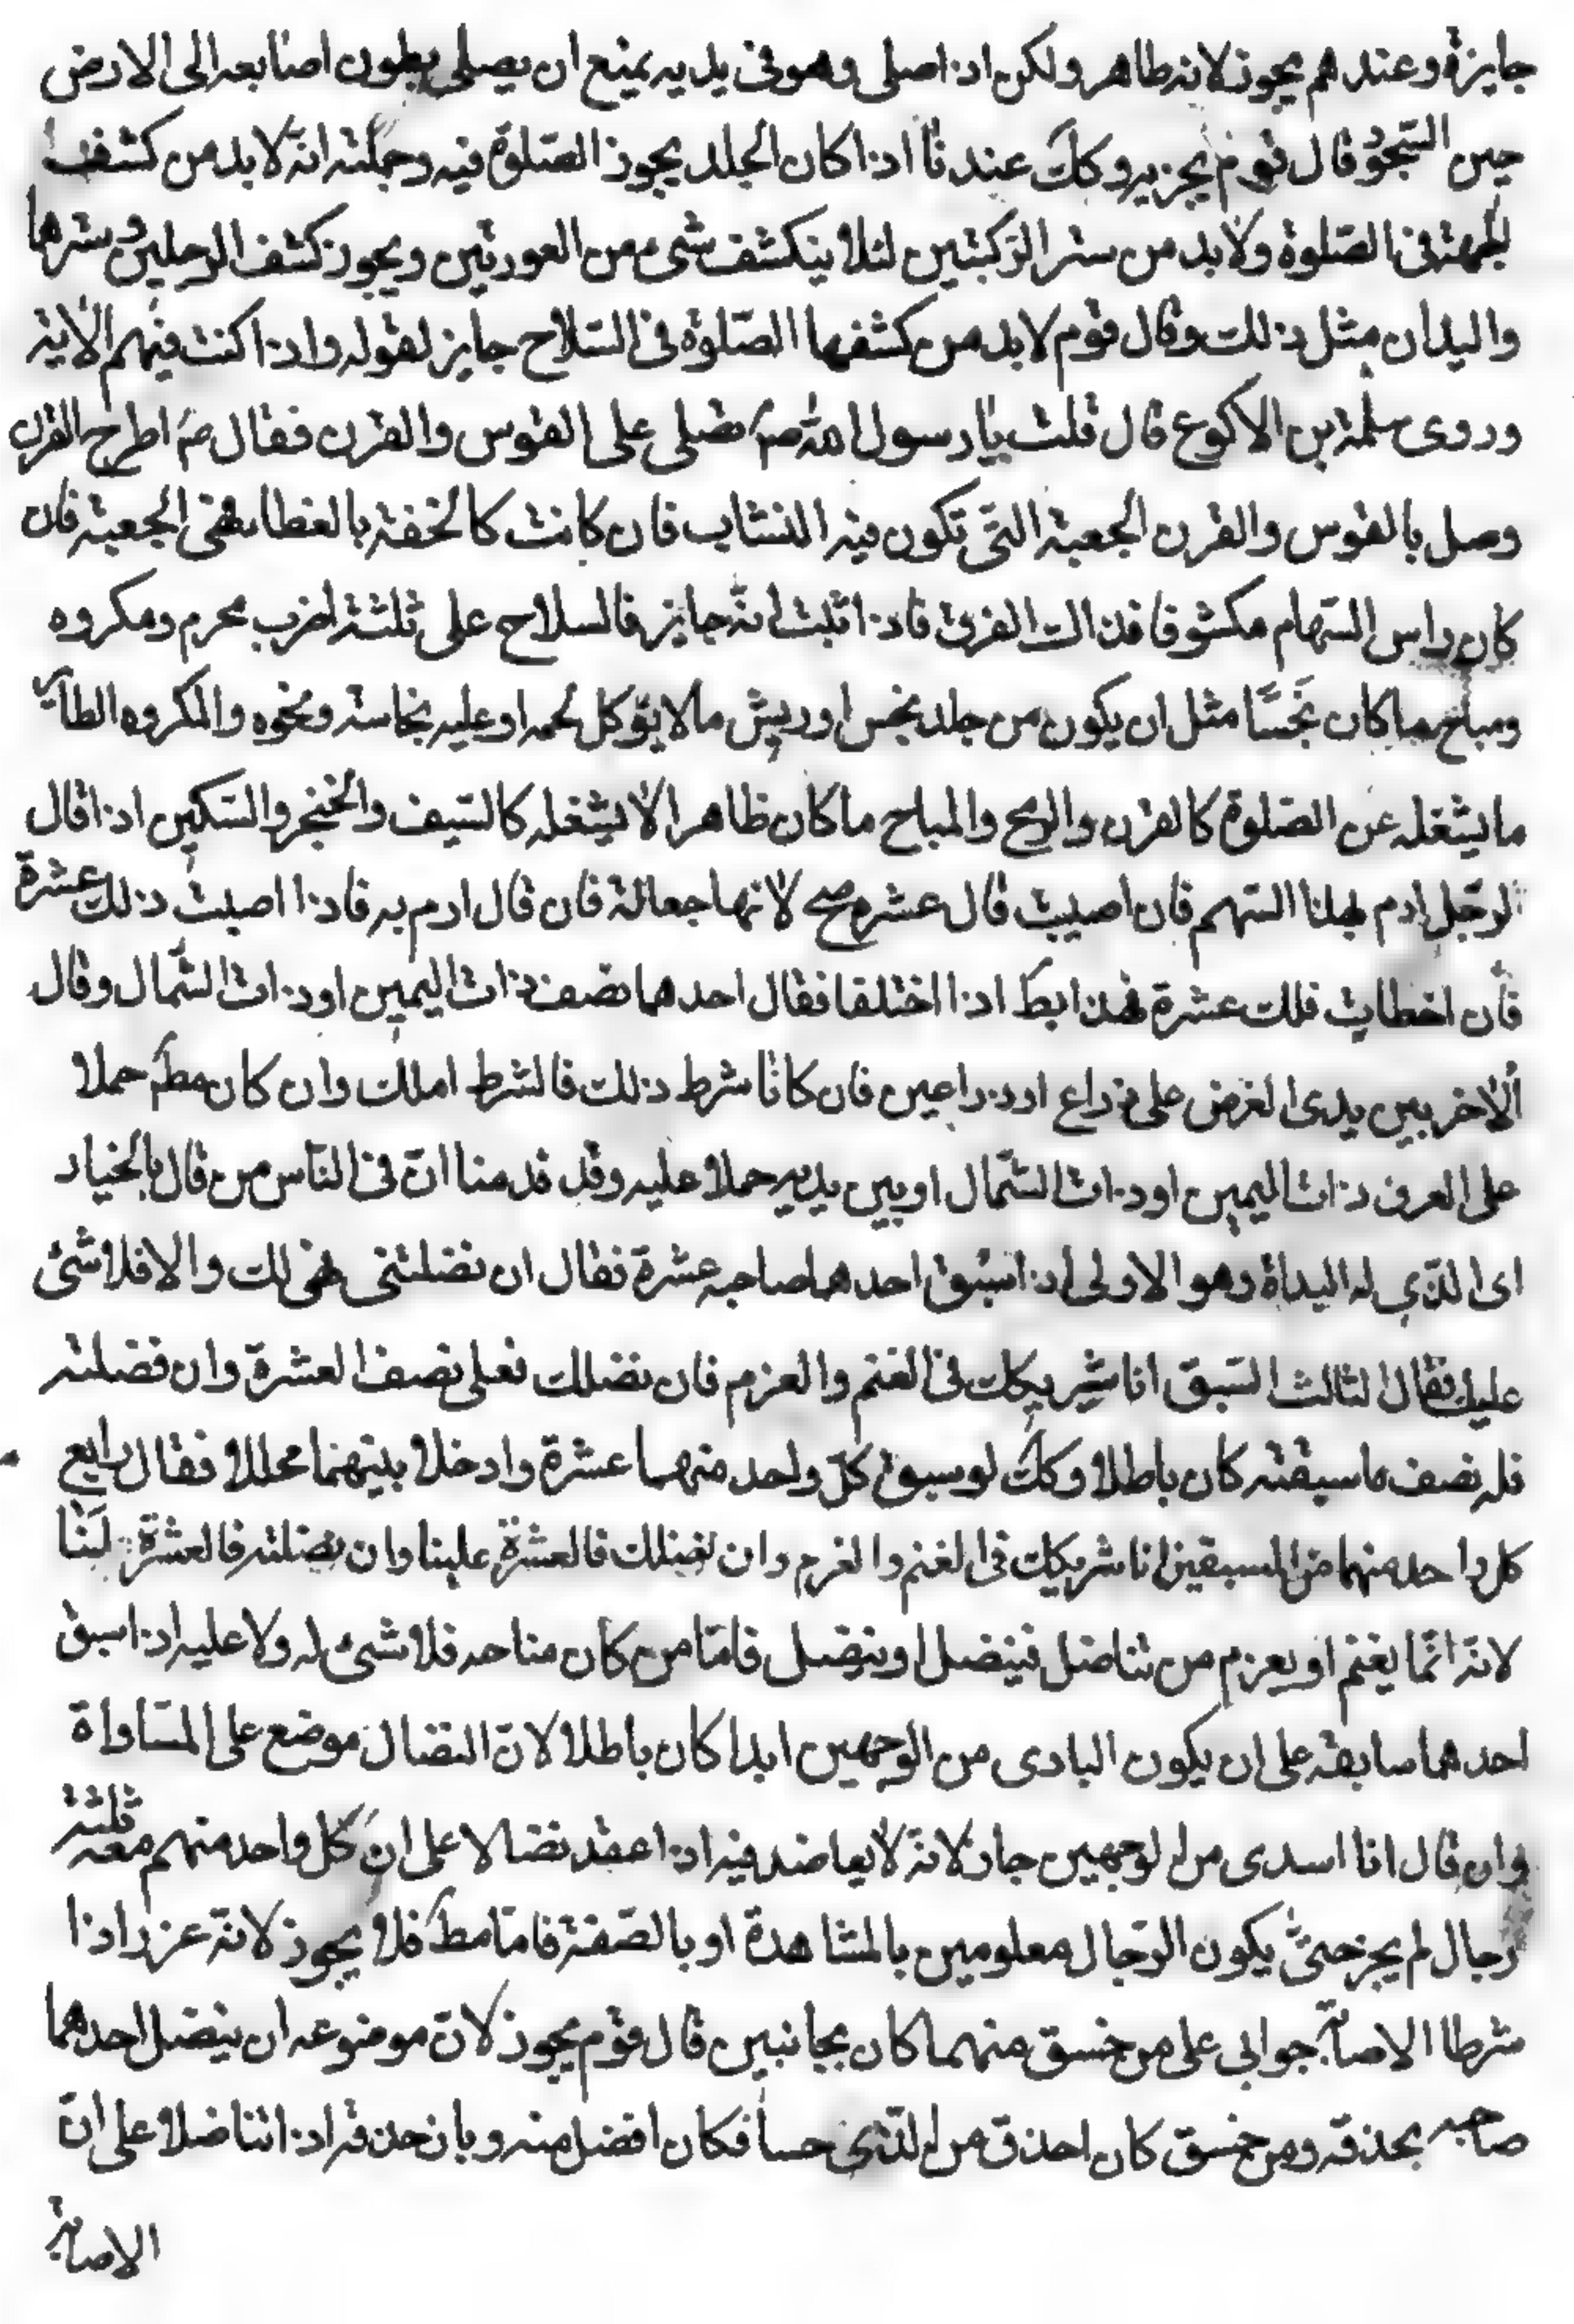 جايزة وعندهم يجوز لانه طاهر ولكن اذا صلى وهو في يديه يمنع ان يصلي بطون اصابعه الى الارض
حين السجود قال قوم يجزيه وكك عندنا اذا كان الجلد يجوز الصلوة فيه وجملته انه لا بد من كشف
الجبهة في الصلوة ولا بد من ستر الركبتين لئلا ينكشف شيء من العورتين ويجوز كشف الرجلين وسترها
واليدان مثل ذلك وقال قوم لا بد من كشفها الصلوة في السلاح جايز لقوله واذا كنت فيهم الاية
وروى سلمة بن الاكوع قال قلت يا رسول الله ص نصلى على القوس والقرن فقال ص اطرح القرن
وصل بالقوس والقرن الجعبة التي تكون فيه النشاب فان كانت كالخفة بالغطا فهي الجعبة فان
كان راس السهام مكشوفا فذاك القرن فاذا ثبت انه جايز فالسلاح على ثلثة اضرب محرم ومكروه
ومباح ما كان نجسا مثل ان يكون من جلد نجس او ريش ما لا يؤكل لحمه او عليه نجاسة ونحوه والمكروه الطا
ما يشغله عن الصلوة كالقرن والرمح والمباح ما كان ظاهرا لا يشغله كالسيف والخنجر والسكين اذا قال
لرجل ارم بهذا السهم فان اصبت قال عشرة صح لانها جعالة فان قال ارم به فاذا اصبت ذلك عشرة
فان اخطات فلك عشرة فهذا بط اذا اختلفا فقال احدهما نصف ذات اليمين او ذات الشمال وقال
الاخر بين يدى الغرض على ذراع او ذراعين فان كانا شرط ذلك فالشرط املك وان كان مطم حملا
على العرف ذات اليمين او ذات الشمال او بين يديه حملا عليه وقد قدمنا ان في الناس من قال بالخيار
اى الذي له البداة وهو الاولى اذا سبق احدهما صاحبه عشرة فقال ان نضلتني فهي لك والا فلا شئ
عليك فقال الثالث السبق انا شريكك في الغنم والعزم فان نضلك فعلى نصف العشرة وان فضلته
فله نصف ما سبقته كان باطلا وكك لو سبق كل واحد منهما عشرة وادخلا بينهما محللا فقال رابع
كل واحد منهما من المسبقين انا شريكك في الغنم والغرم وان نضلك فالعشرة علينا وان نضلته فالعشرة لنا
لانه انما يغنم او يعزم من تناضل فينضل او ينضل فاما من كان مناحه فلا شئ له ولا عليه اذا سبق
احدهما سابقه على ان يكون البادى من الوجهين ابدا كان باطلا لان النضال موضع على المساواة
وان قال انا اسدى من الوجهين جار لانه لا يعاضد فيه اذا عقد نضالا على ان كل واحد منهم معه ثلثة
رجال لم يجز حتى يكون الرجال معلومين بالمشاهدة او بالصفة فاما مط فلا يجوز لانه عزر اذا
شرطا الاصابة جوابى على من خسق منهما كان بجانبين قال قوم يجوز لان موضوعه ان ينضل احدهما
صاحبه بحذقه ومن خسق كان احذق من الذى حسا فكان افضل منه وبان حذقه اذا تناضلا على ان
الاصابة